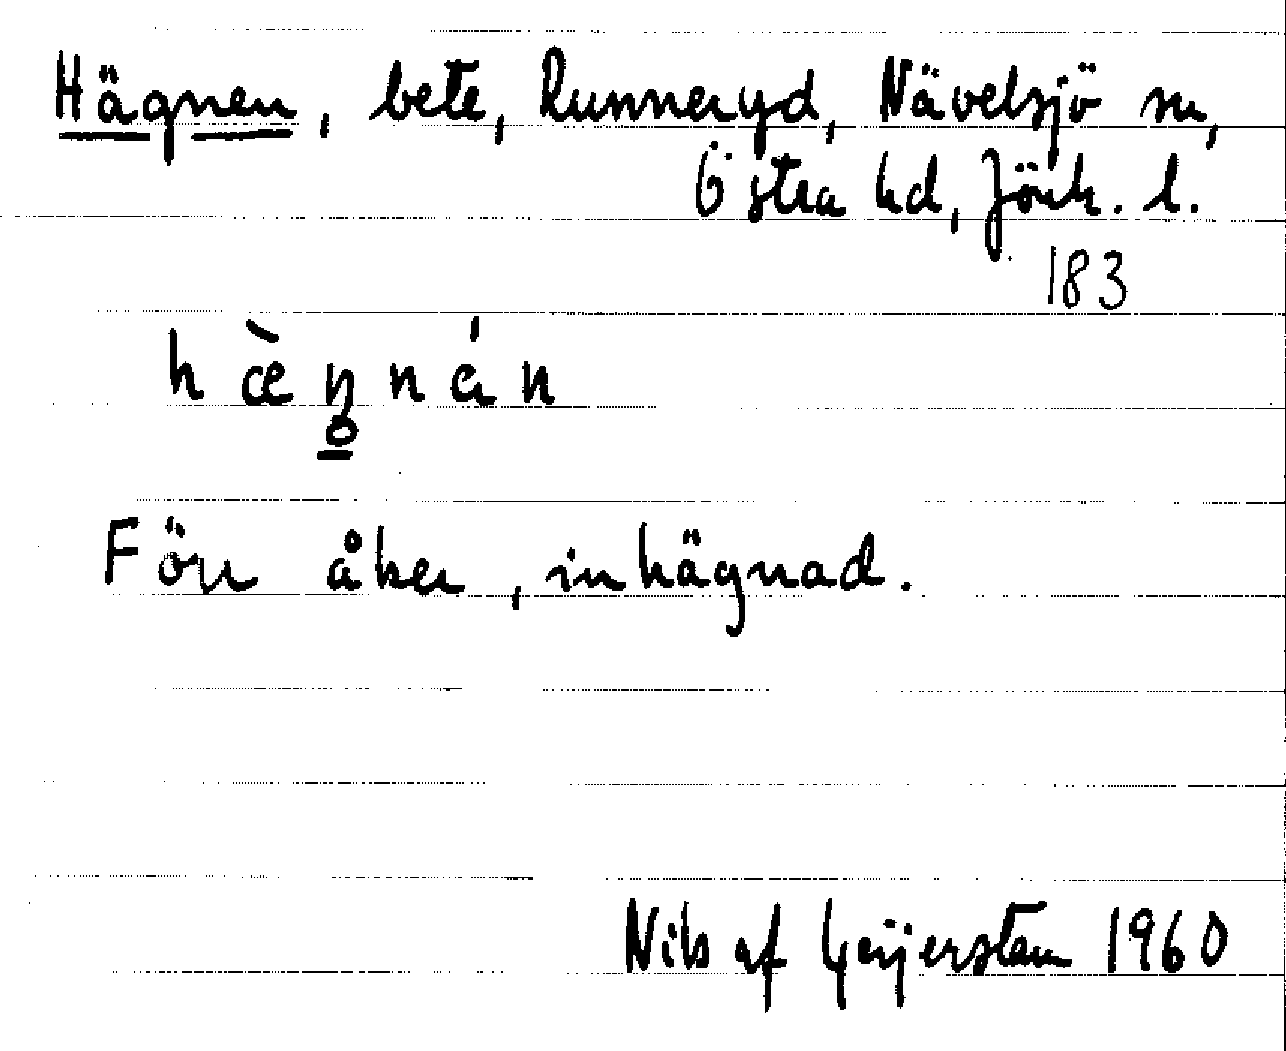 Hägnen, bete, Runneryd, Nävelsjö sn,
Östra hd, Jönk. l.
183
hæ̀ŋnán
Förr åker, inhägnad.
Nils af Geijerstam 1960